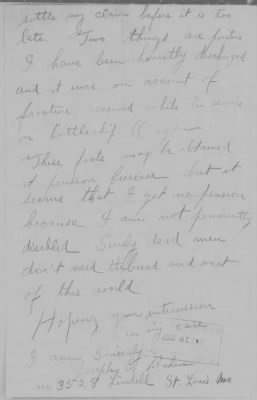 settle my claim before it is too
late. Two things are positive
I have been honestly discharged
and it was on account of
fracture received while in service
on Battleship Oregon.
These facts may be obtained
at pension bureau but it
seems that I get no pension
because I am not permanently
disabled Surely dead men
don't need the bread and meat
of this world
Hoping your intercession
in my case
I am Sincerely
Joseph G.
no 3528 Lindell St. Louis Mo